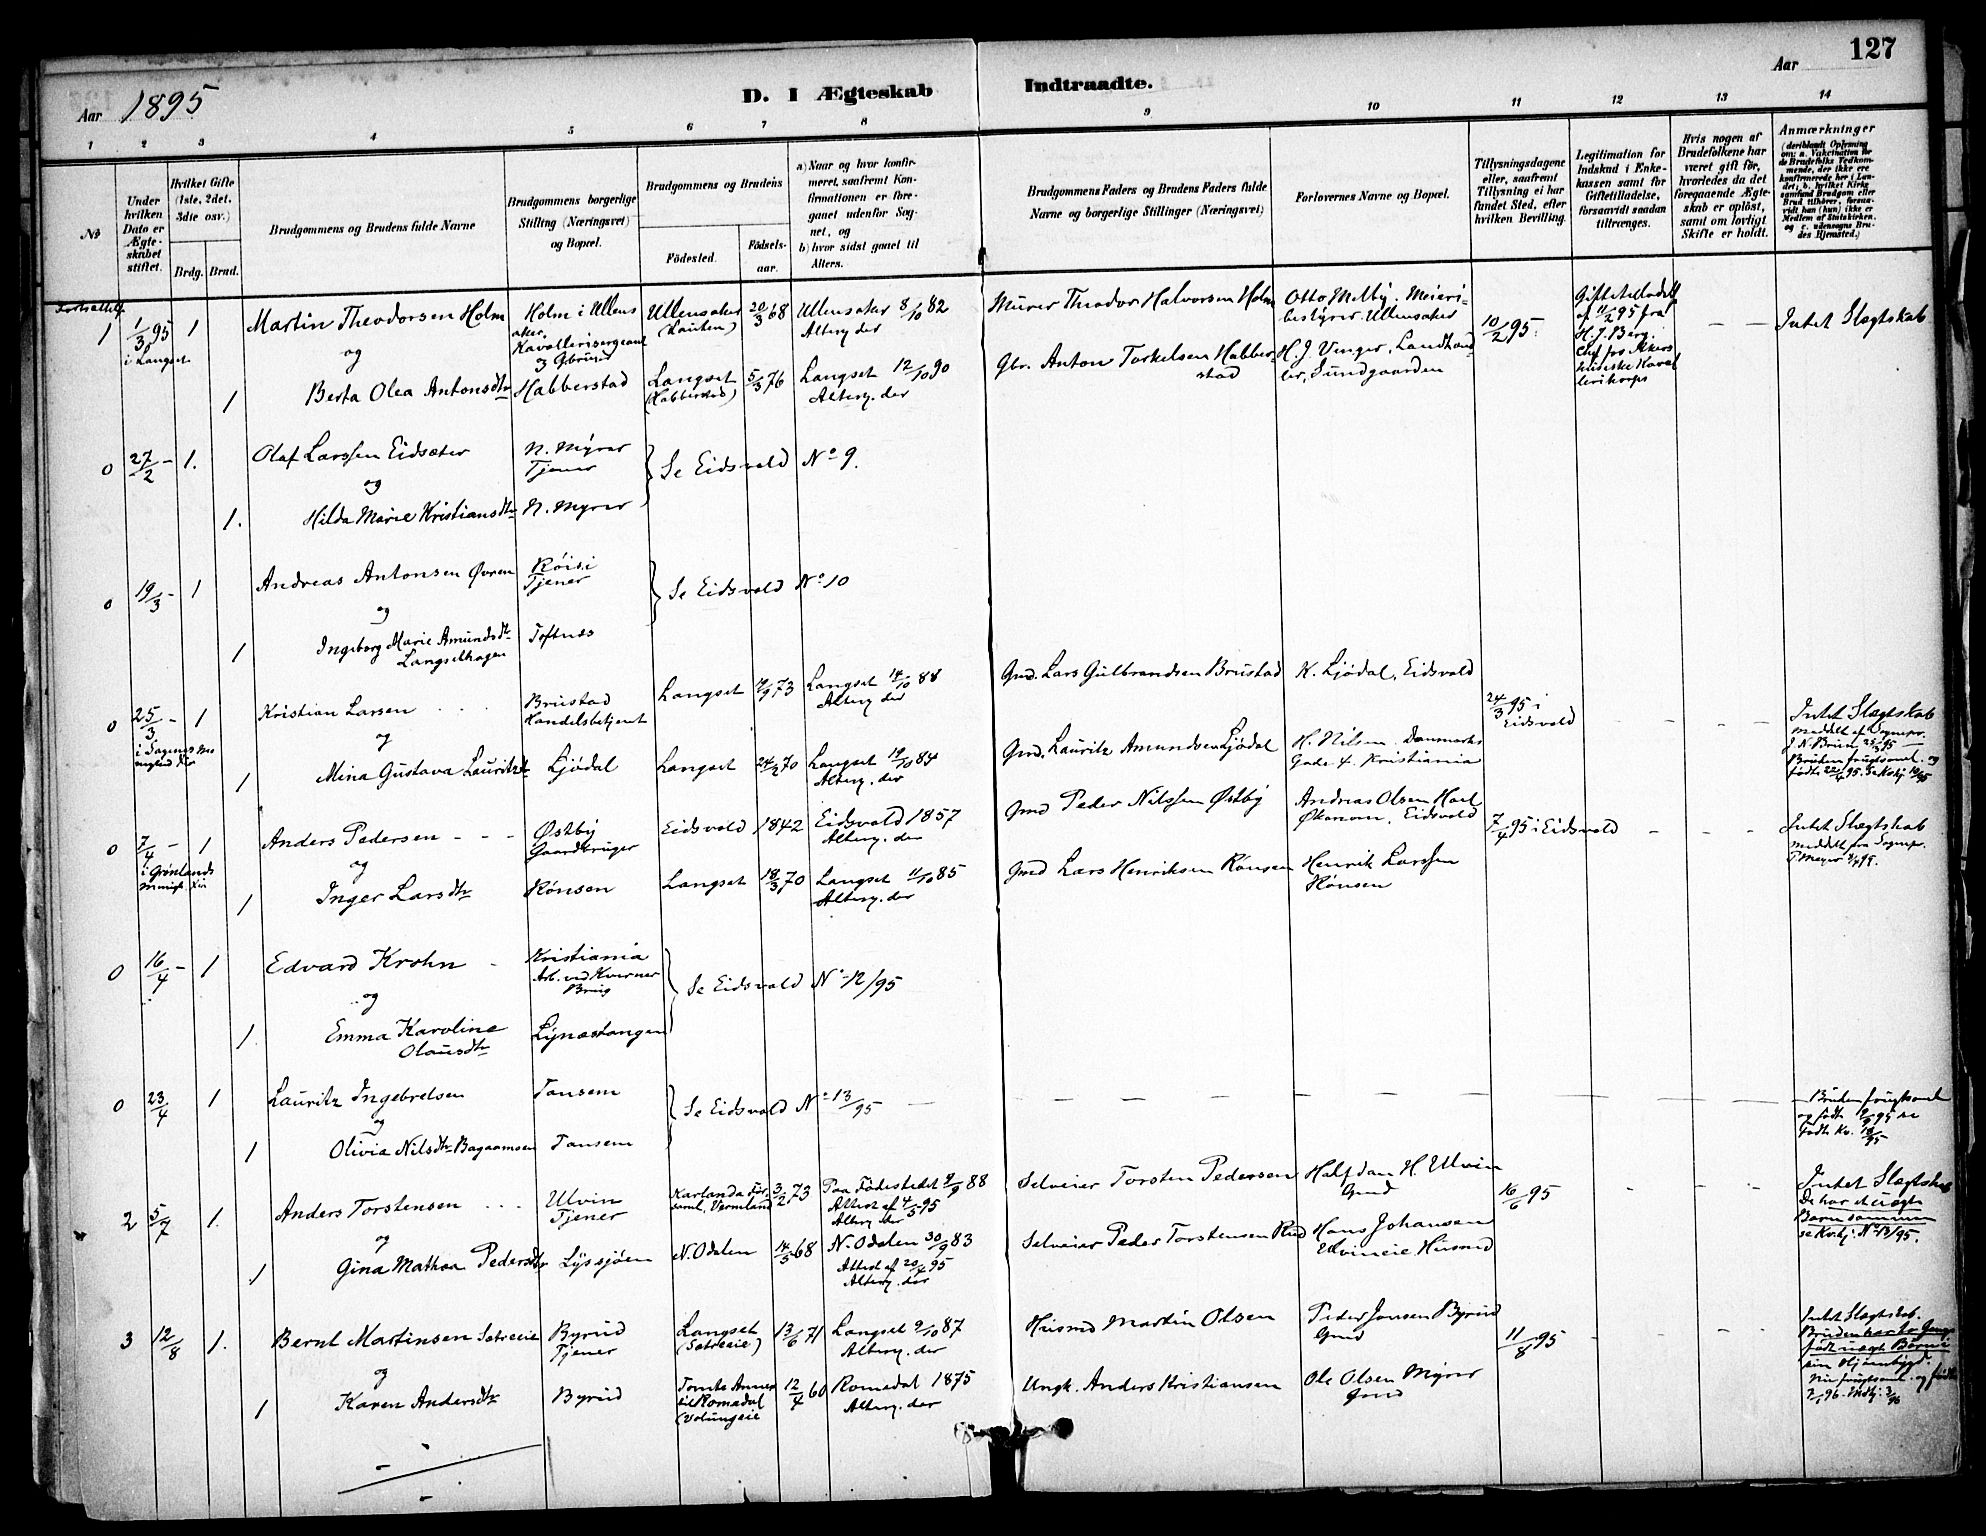 Aar 1895
D. I Ægteskab Indtraadte.
Aar
127
1 2 3 4 5 6 7 8 9 10 11 12 13 14
No
Under hvilken Dato er Ægteskabet stiftet.
Hvilket Gifte (1ste, 2det. 3die osv.)
Brdg. Brud.
Brudgommens og Brudens fulde Navne
Brudgommens borgerlige Stilling (Næringsvei) og Bopæl.
Brudgommens og Brudens
Födested.
Födsels-aar.
a) Naar og hvor konfirmeret, saafremt Konfirmationen er foregaaet udenfor Sognet, og
b) hvor sidst gaaet til Alters.
Brudgommens Faders og Brudens Faders fulde Navne og borgerlige Stillinger (Næringsvei)
Forlovernes Navne og Bopæl.
Tillysningsdagene eller, saafremt Tillysning ei har fundet Sted, efter hvilken Bevilling.
Legitimation for Indskud i Enkekassen samt for Giftetilladelse, forsaavidt saadan tiltrænges.
Hvis nogen af Brudefolkene har været gift før, hvorledes da det foregaaende Ægteskab er oplöst, samt om lovligt Skifte er holdt.
Anmærkninger
(deriblandt Oplysning om: a. Vakcination for de Brudefolks Vedkommende, der ikke ere konfirmerede her i Landet; b. hvilket Kirkesamfund Brudgom eller Brud tilhörer, forsaavidt han (hun) ikke er Medlem af Statskirken, og c. udensogns Brudes Hjemsted.)
1 1/3 95 i Langset 1 Martin Theodorsen Holm Holm i Ullensaker, Kavallerisergeant og Gbruger Ullensaker (Kauten) 20/3 68 Ullensaker 8/10 82 Alterg. der Murer Theodor Halvorsen Holm Otto Melby. Meieribestyrer. Ullensaker 10/2 95. Giftetilladelse af 11/2 95 fra H. J. Berg Chef for Akershusiske Kavallerikorps — — Intet Slægtskab
og
1 Berta Olea Antonsdtr Habberstad Langset (Habberstad) 5/3 76 Langset 12/10 90 Alterg. der Gbr. Anton Torkelsen Habberstad H. J. Venger, Landhandler, Sundgaarden
0 27/2 - 1. Olaf Larssen Eidsæter N. Myrer Tjener Se Eidsvold No 9.
og
1. Hilda Marie Kristiansdtr N. Myrer
0 19/3 - 1 Andreas Antonsen Øvren Röisi Tjener Se Eidsvold No 10
og
1 Ingeborg Marie Amundsdtr Langsethagen Toftnes
0 25/3 - 1 Kristian Larsen Brustad Handelsbetjent Langset 7/9 73 Langset 14/10 88 Alterg. der Gmd. Lars Gulbrandsen Brustad K. Ljödal, Eidsvold 24/3 95 i Eidsvold Intet Slægtskab
i Sagenes menighed meddelt af Sognepr. J. N. Bruun 25/3 95
og
1 Mina Gustava Lauritzdtr Ljödal Langset 24/2 70 Langset 19/10 84 Alterg. der Gmd. Lauritz Amundsen Ljödal H. Nilsen. Danmarks Gade 4. Kristiania Bruden frugtsoml. og
0 7/4 - 1 Anders Pedersen Østby Gaardbruger Eidsvold 1842 Eidsvold 1857 Alterg. der Gmd Peder Nilssen Østby Andreas Olsen Hoel Økonom, Eidsvold 7/4 95 i Eidsvold Intet Slægtskab
i Grønlands menigh. meddelt fra Sognepr.
og
1 Inger Larsdtr Rönsen Langset 18/3 70 Langset 11/10 85 Alterg. der Gmd Lars Henriksen Rönsen Henrik Larssen Rönsen
0 16/4 - 1 Edvard Krohn Kristiania Arb. ved Kværner Brug Se Eidsvold No 12/95
og
1 Emma Karoline Olausdtr Lynæstangen
0 23/4 1 Lauritz Ingebretsen Tansem Se Eidsvold No 13/95 Bruden frugtsoml.
og
1 Olivia Nilsdtr Bagaamoen Tansem
2 5/7 1. Anders Torstensen Ulvin Tjener Karlanda För.saml. Vermland 3/2 73 Paa Födestedet 9/9 88 Attest af 4/5 95 Alterg. der Selveier Torsten Pedersen Halfdan H. Ulvin Gmd 16/6 95 Intet Slægtskab
De har et uægte Barn sammen se Kirkbj. No 13/95.
og
1 Gina Mathea Pedersdtr Lyssjöen N. Odalen 14/5 68 N. Odalen 30/9 83 Attest af 20/4 95 Alterg. der Selveier Peder Torstensen Rud Hans Johansen Ulvineie, Husmd
3 12/8 1. Bernt Martinsen Sætreeie Byrud Tjener Langset (Sætreeie) 13/6 71 Langset 9/10 87 Alterg. der Husmd Martin Olsen Peder Jensen Byrud Gmd 11/8 95 Intet Slægtskab.
og
1 Karen Andersdtr Byrud Tomte Annex til Romedal 12/4 60 Romedal 1875 Alterg. der Ungk. Anders Kristiansen Ole Olsen Myrer Gmd